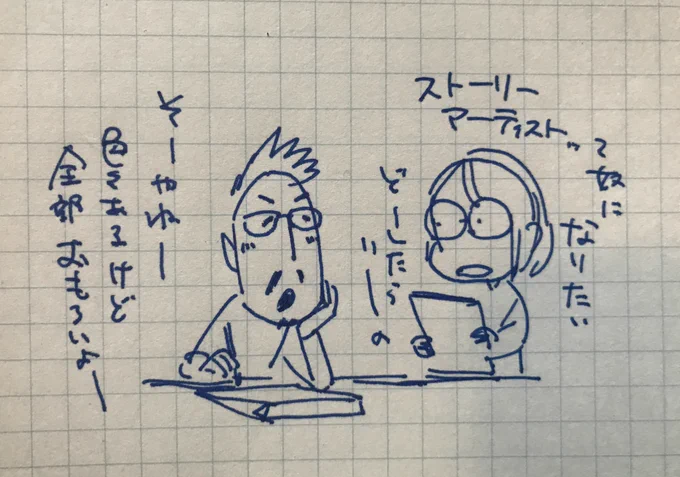 ストーリー
アーティスト…
って奴に
なりたい
どーしたら
いーの
そーやねー
色々あるけど
全部おもろいよー